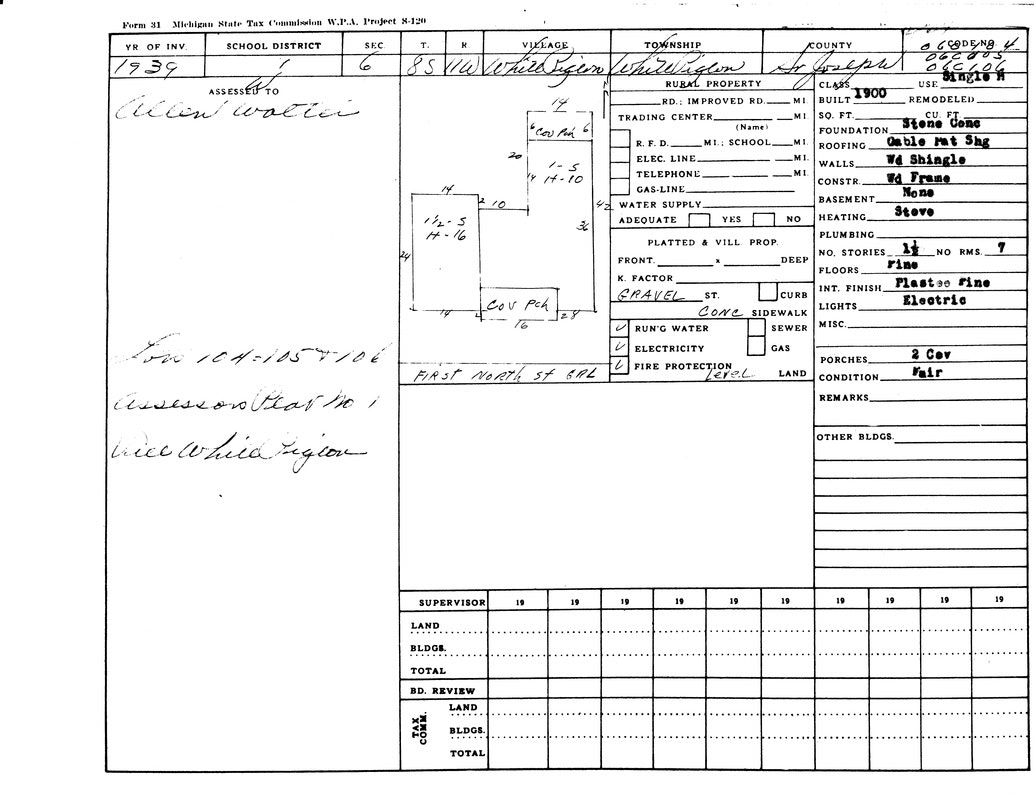 Form 31 Michigan State Tax Commission W.P.A. Project S-120
YR OF INV. SCHOOL DISTRICT SEC. T. R VILLAGE TOWNSHIP COUNTY CODE NO. 4
1939 1 6 8S 11W White Pigeon White Pigeon St Joseph
06C105
06C106
ASSESSED TO
Allen Walter
Lon 104=105 & 106
Assessors Plat No 1
Vill White Pigeon
14
6 Cov Pch 6
20
1-S
14 H-10
14
2 10
42
1½-S
H-16
36
24
Cov Pch
14 2 16 28
FIRST NORTH ST GRL
RURAL PROPERTY
RD.; IMPROVED RD. MI.
TRADING CENTER MI.
(Name)
R. F. D. MI.; SCHOOL MI.
ELEC. LINE MI.
TELEPHONE MI.
GAS-LINE
WATER SUPPLY
ADEQUATE YES NO
PLATTED & VILL PROP.
FRONT. x DEEP
K. FACTOR
GRAVEL ST. CURB
CONC SIDEWALK
✓ RUN'G WATER SEWER
✓ ELECTRICITY GAS
✓ FIRE PROTECTION
Level LAND
CLASS USE Single H
BUILT 1900 REMODELED
SQ. FT. CU. FT.
FOUNDATION Stone Conc
ROOFING Gable Pat Shg
WALLS Wd Shingle
CONSTR. Wd Frame
BASEMENT None
HEATING Stove
PLUMBING
NO. STORIES 1½ NO RMS. 7
FLOORS Pine
INT. FINISH Plaster Pine
LIGHTS Electric
MISC.
PORCHES 2 Cov
CONDITION Fair
REMARKS
OTHER BLDGS.
SUPERVISOR 19 19 19 19 19 19 19 19 19 19
LAND
BLDGS.
TOTAL
BD. REVIEW
TAX COMM.
LAND
BLDGS.
TOTAL